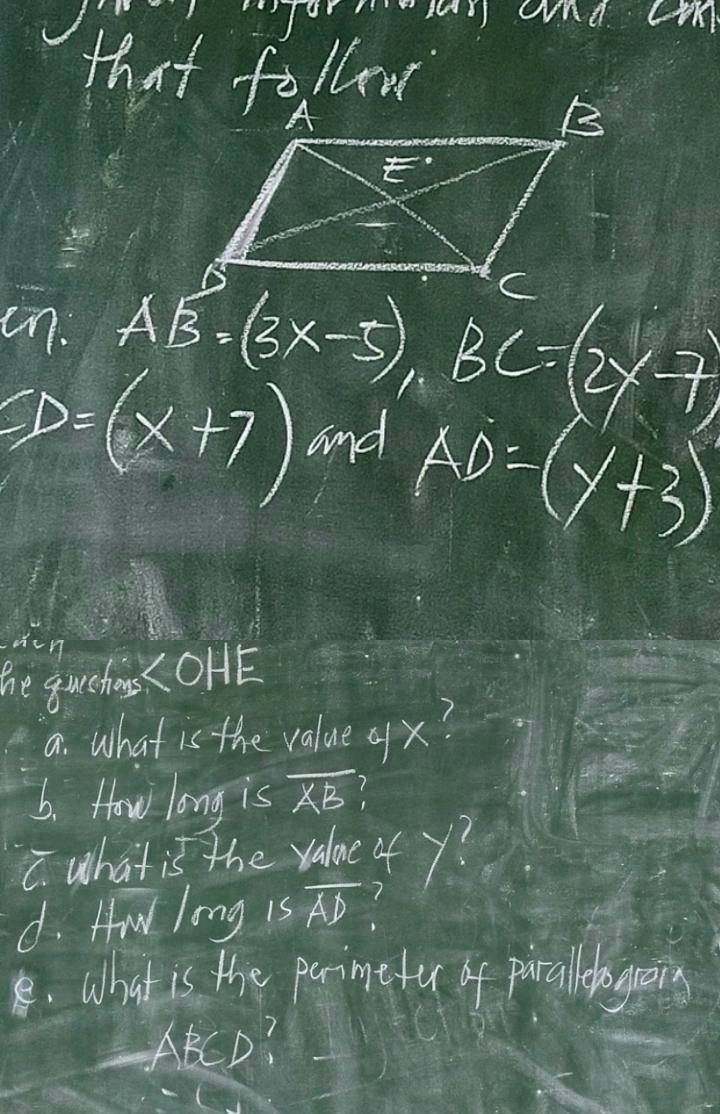 information and
that follow
A
B
E
D
C
en: AB=(3x-5), BC=(2y-7)
CD=(x+7) and AD=(y+3)
he questions <OHE
a. what is the value of x?
b. How long is AB?
c. what is the value of y?
d. How long is AD?
e. what is the perimeter of parallelogram
ABCD?